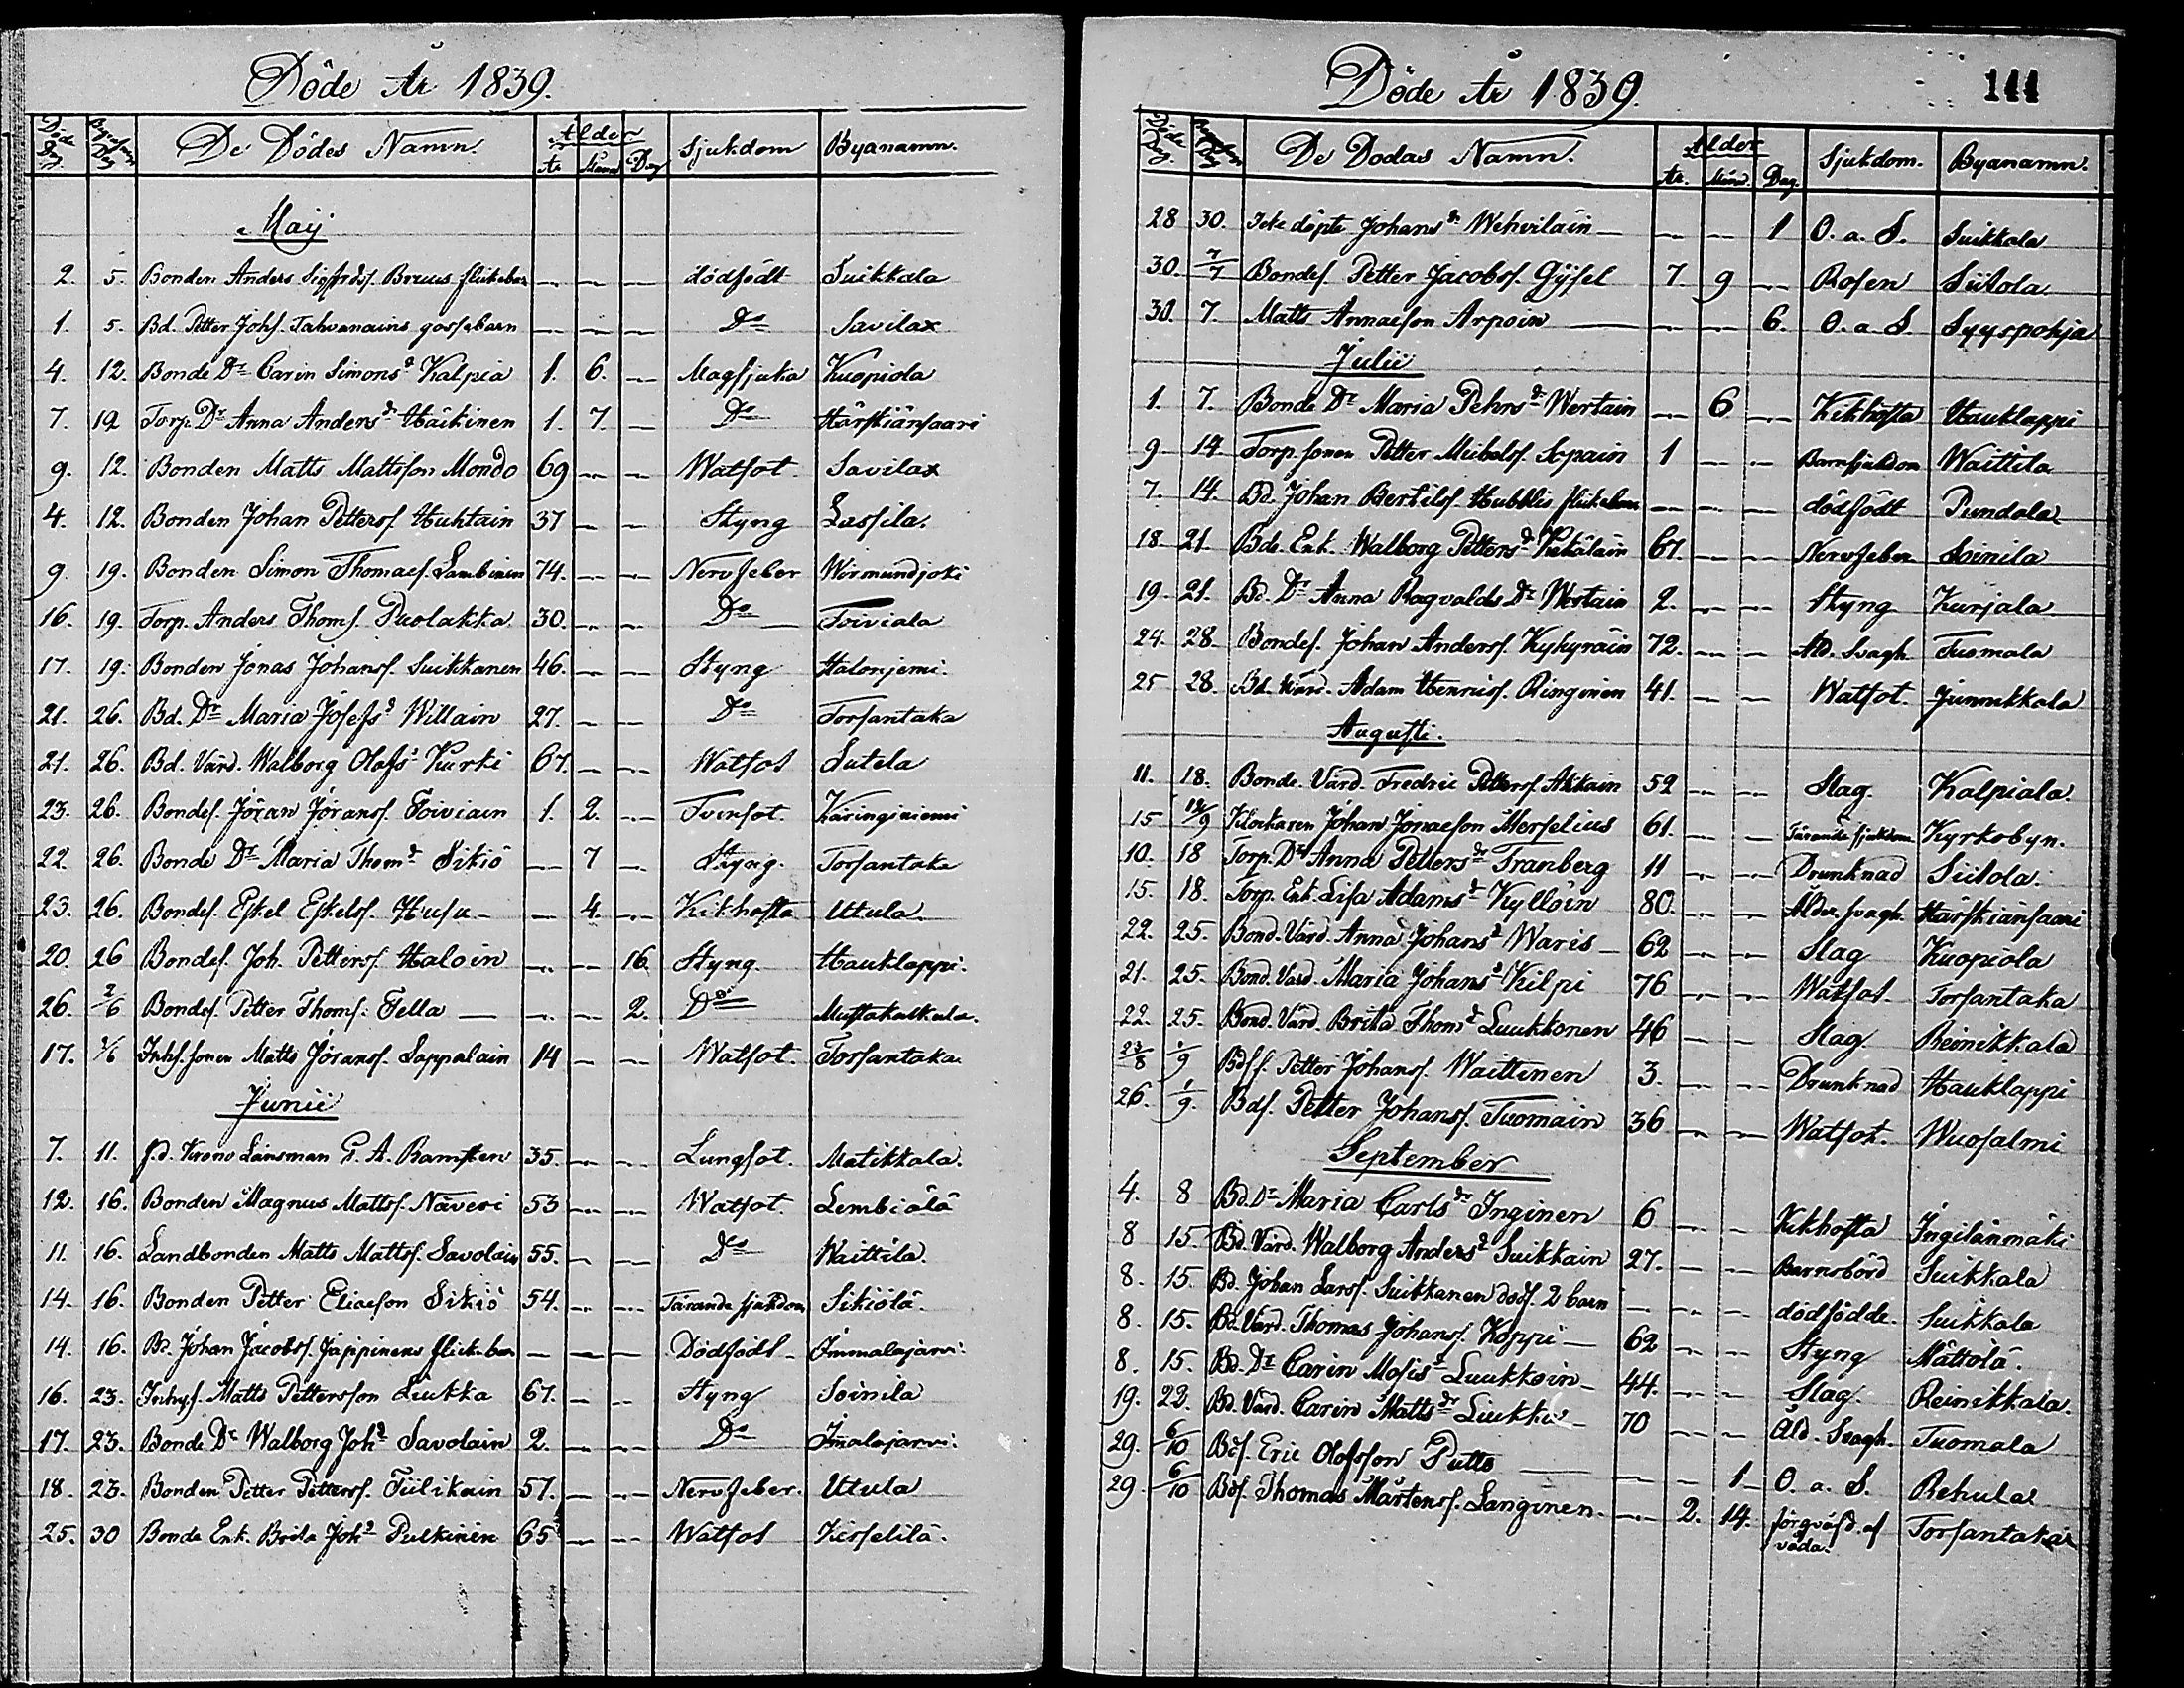 Döde År 1839.
Döde Dag. Begrafnings Dag De Dödes Namn. Ålder År Månad Dag Sjukdom Byanamn.
Maij
2. 5. Bonden Anders Sigfredsf. Bruus flickebarn — — — dödfödt Suikkala
1. 5. Bd. Petter Johf. Tahvanains gossebarn — — — Do Savilax
4. 12. Bonde Dr Carin Simonsd Kalpia 1. 6. — Magsjuka Kuopiola
7. 19 Torp. Dr Anna Andersdr Häikinen 1. 7. — Do Härskiänsaari
9. 12. Bonden Matts Mattsson Mondo 69 — — Watsot Savilax
4. 12. Bonden Johan Pettersf. Huhtain 37 — — Styng Lassila.
9. 19. Bonden Simon Thomaef. Lambinen 74. — — Nervfeber Wirmundjoki
16. 19. Torp. Anders Thomf. Puolakka 30. — — Do Toiviala
17. 19. Bonden Jonas Johansf. Suikkanen 46. — — Styng Halonjemi.
21. 26. Bd. Dr Maria Josefsd Willain 27. — — Do Torsantaka
21. 26. Bd. Värd. Walborg Olofsd Kurki 67. — — Watsot Sutela
23. 26. Bondes. Jöran Jöransf. Toiviain 1. 2. — Tvinsot. Käringiniemi
22. 26. Bonde Dr Maria Thomd Sikiö — 7 — Styng. Torsantaka
23. 26. Bondes. Eskel Eskelsf. Husu — — 4. — Kikhosta Utula
20. 26 Bondes. Joh. Pettersf. Haloin — — 16. Styng. Hauklappi.
26. 2/6 Bondes. Petter Thomf. Tella — — — 2. Do Mustakalkula.
17. 2/6 Inhf. sonen Matts Jöransf. Lappalain 14 — — Watsot. Torsantaka
Junii
7. 11. f.d. Krono Länsman G. A. Bamsten 35. — — Lungsot. Matikkala.
12. 16. Bonden Magnus Mattsf. Näveri 53 — — Watsot. Lembiälä
11. 16. Landbonden Matts Mattsf. Savolain 55. — — Do Waittila.
14. 16. Bonden Petter Eliaeson Sikiö 54. — — Tärande sjukdom Sikiölä.
14. 16. Bd. Johan Jacobsf. Jäppinens flickebarn — — — Dödfödt — Immalajärvi.
16. 23. Inhyf. Matts Pettersson Liukka 67. — — Styng Soinila
17. 23. Bonde Dr Walborg Johd Savolain 2. — — Do Imalajarvi.
18. 23. Bonden Petter Pettersf. Tiilikain 57. — — Nervfeber. Utula
25. 30 Bonde Enk. Brita Johd Pulkinen 65 — — Watsot Kisselilä.
Döde År 1839.
144
Döde Dag Begrafn. Dag De Dodas Namn. Ålder År. Månd. Dag. Sjukdom. Byanamn.
28 30. Icke döpte Johansdr Wehviläin — — — 1 O. a. S. Suikkala
30. 7/7 Bondes. Petter Jacobsf. Gÿsel 7. 9 — Rosen Siitola
30. 7. Matts Annaeson Arpoin — — — 6. O. a S. Syyspohja
Julii
1. 7. Bonde Dr Maria Pehrsdr Wertain — 6 — Kikhosta Hauklappi
9 14. Torp. sonen Petter Mickelsf. Sopain 1 — — Barnsjukdom Waittila
7. 14. Bd. Johan Bertilsf. Hubblis flickebarn — — — dödfödt Pundola
18. 21. Bde. Enk. Walborg Pettersdr Kekäläin 67. — — Nervfeber Soinila
19. 21. Bd. Dr Anna Ragvalds Dr Wertain 2. — — Styng Kurjala
24. 28. Bondes. Johan Andersf. Kyhyräin 72. — — Ald. Svagh. Tuomala
25 28. Bd. Värd. Adam Henricsf. Ringinen 41. — — Watsot. Junnikkala
Augusti.
11. 18. Bonde. Värd. Fredric Pettersf. Akkain 52 — — Slag Kalpiala.
15 18/9 Klockaren Johan Jonaeson Merselius 61. — — Tärande sjukdom Kyrkobyn.
10. 18 Torp. Dr Anna Pettersdr Tranberg 11 — — Drunknad Siitola.
15. 18. Torp. Enk. Lisa Adamsd Kyllöin 80. — — Ålder. svagh. Härskiänsaari
22. 25. Bond. Värd. Anna Johansd Waris — 62 — — Slag Kuopiola
21. 25. Bond. Värd. Maria Johansd Kilpi 76 — — Watsot. Torsantaka
22. 25. Bond. Värd. Brita Thomd Luukkonen 46 — — Slag Reinikkala
23/8 1/9 Bdsf. Petter Johansf. Waittinen 3. — — Drunknad Hauklappi
26. 1/9. Bdf. Petter Johansf. Tuomain 36 — — Watsot. Wuosalmi
September
4. 8 Bd. Dr Maria Carlsdr Inginen 6 — — Kikhosta Ingilänmäki
8 15. Bd. Värd. Walborg Andersd Suikkain 27. — — Barnsbörd Suikkala
8. 15. Bd. Johan Larsf. Suikkanen dödf. 2 barn — — — dödfödde. Suikkala
8. 15. Bd. Värd. Thomas Johansf. Koppi — 62 — — Styng Mättölä.
8. 15. Bd. Dr Carin Mosisd Luukkoin — 44. — — Slag. Reinikkala.
19. 22. Bd. Värd. Carin Mattsdr Liukko — 70 — — Åld. Svagh. Tuomala
29. 6/10 Bdf. Eric Olofsson Putto — — — 1 — O. a. S. Rehula
29. 6/10 Bdf. Thomas Mårtensf. Langinen. — 2. 14. förqväfd. af våda. Torsantaka